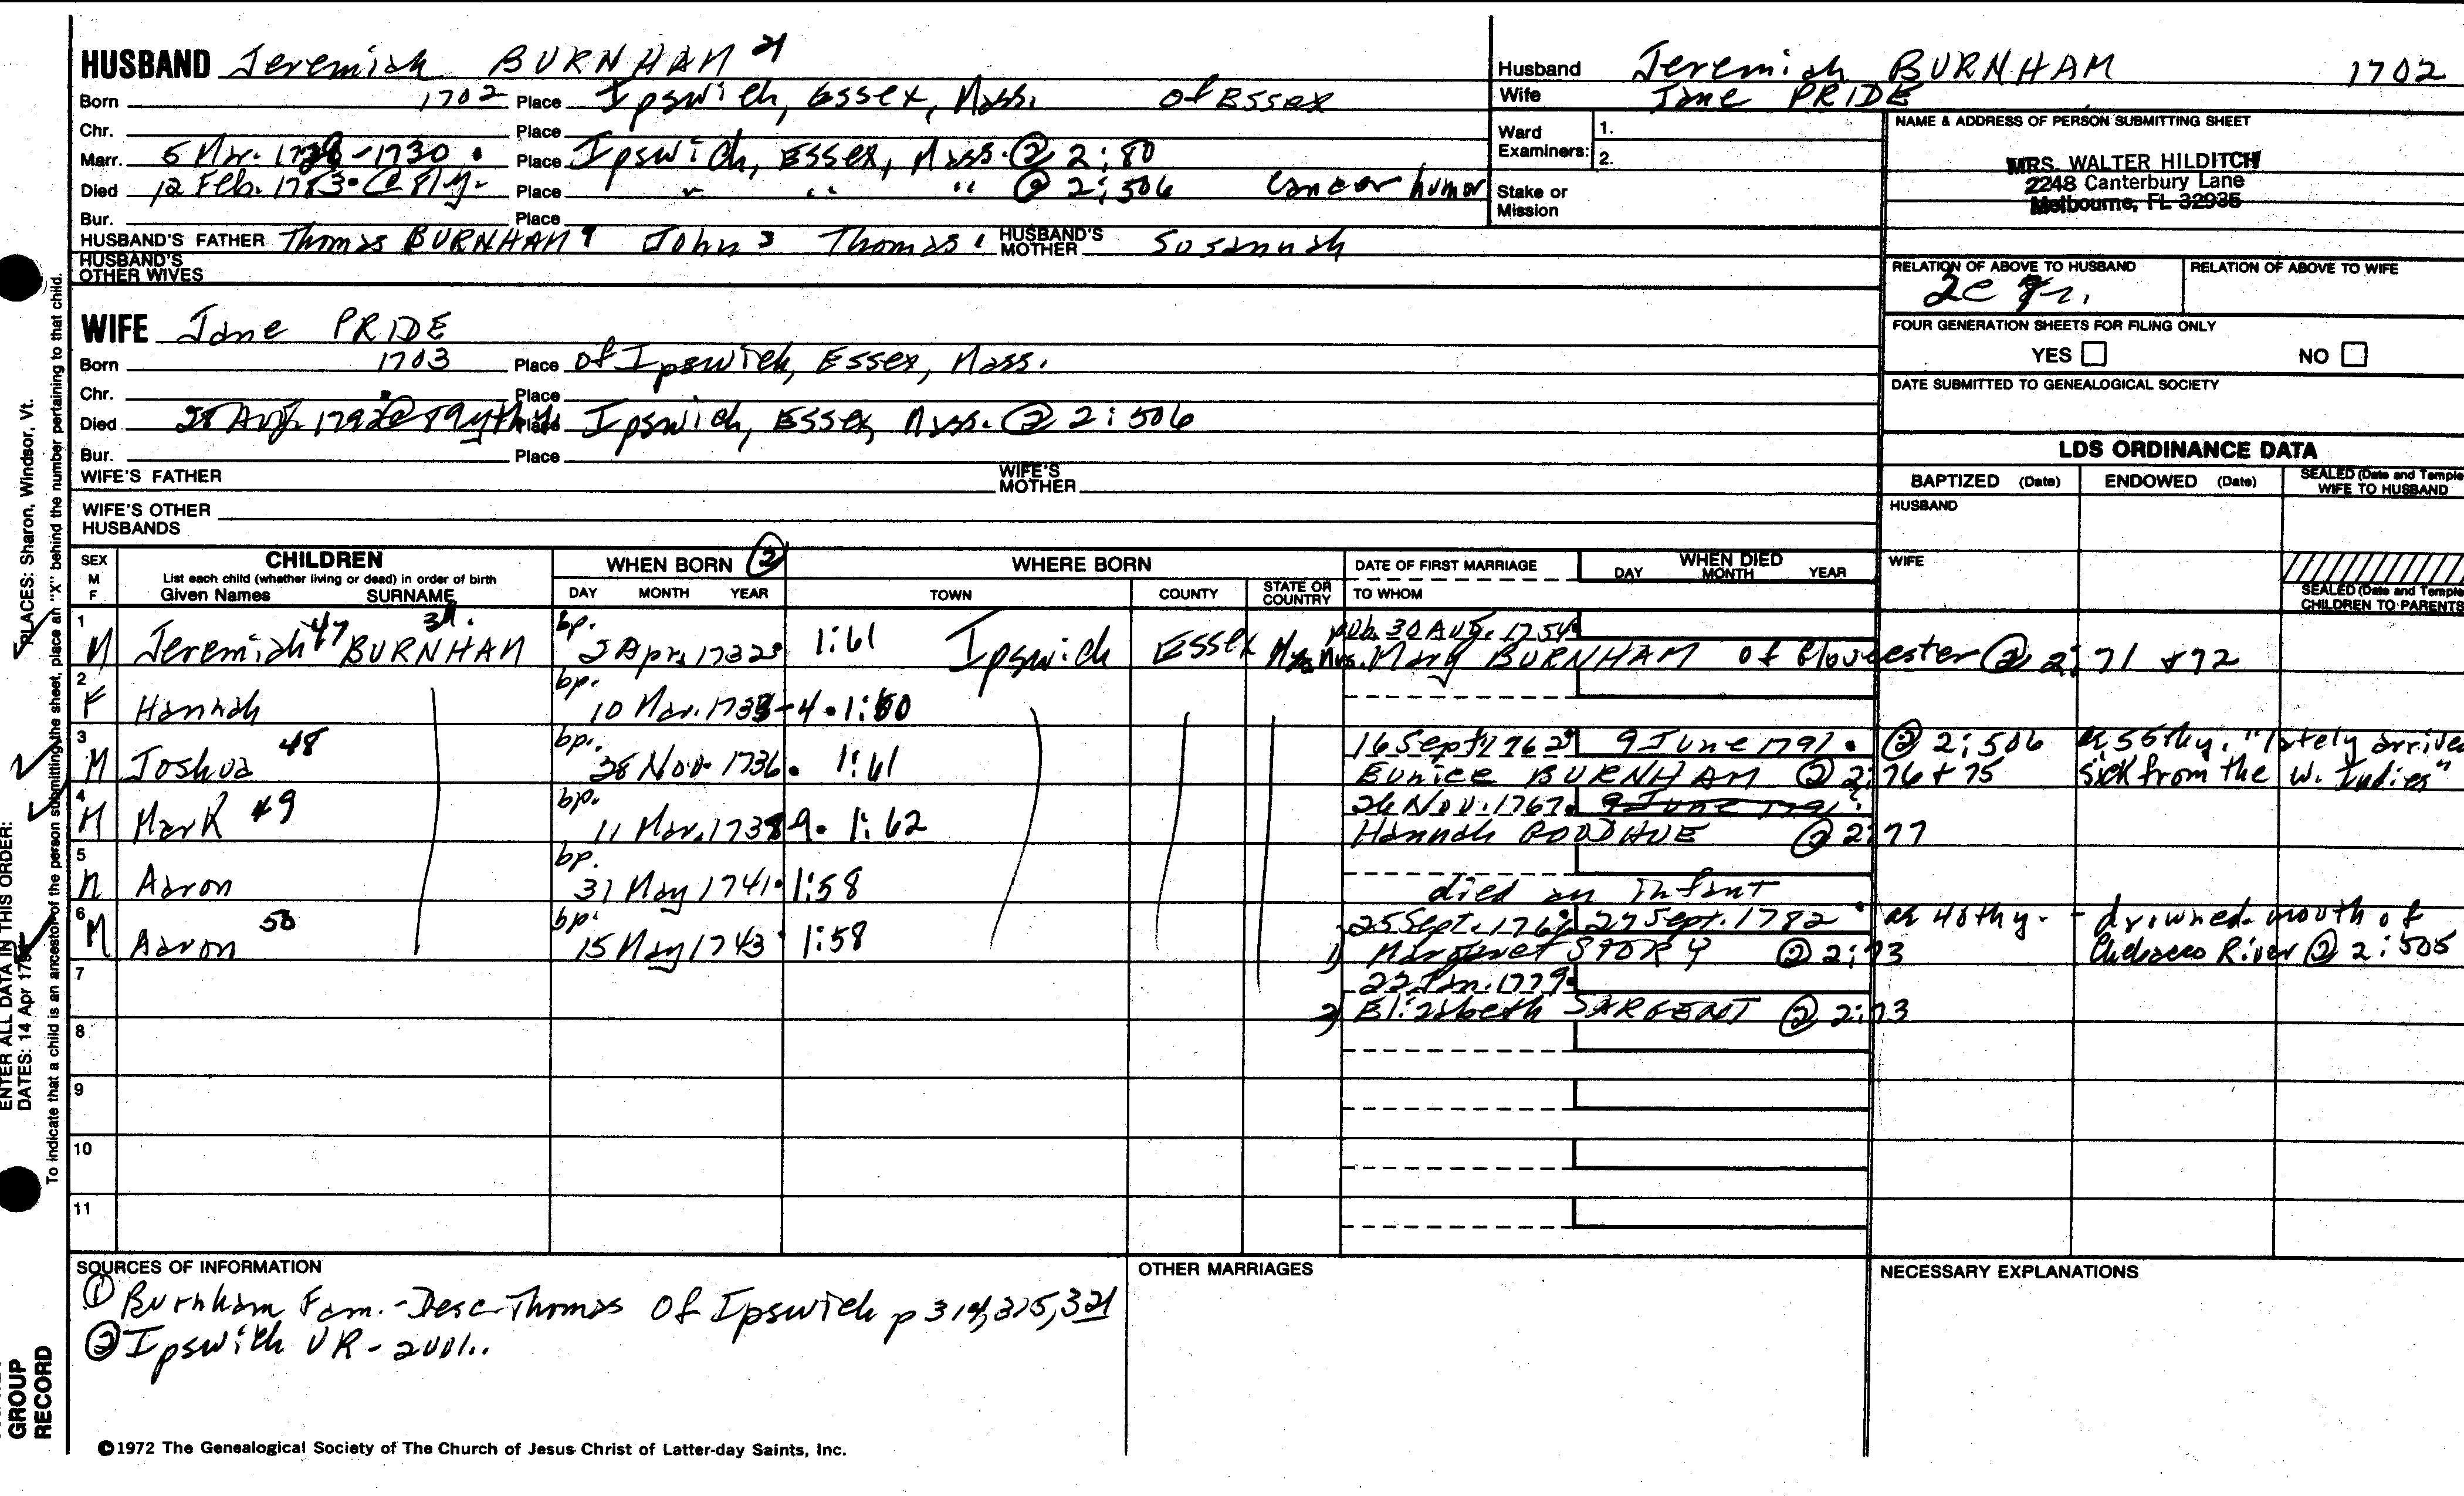 HUSBAND Jeremiah BURNHAM 21
Born 1702 Place Ipswich, Essex, Mass. of Essex
Chr. Place
Marr. 5 Mar. -1730. Place Ipswich, Essex, Mass. @ 2:80
Died 12 Feb. 1783. @ 81 y. Place " " " @ 2:506 Cancer humor
Bur. Place
HUSBAND'S FATHER Thomas BURNHAM John 3 Thomas 1 HUSBAND'S MOTHER Susannah
HUSBAND'S OTHER WIVES
Husband Jeremiah BURNHAM 1702
Wife Jane PRIDE
Ward Examiners: 1.
2.
Stake or Mission
NAME & ADDRESS OF PERSON SUBMITTING SHEET
MRS. WALTER HILDITCH
2248 Canterbury Lane
Melbourne, FL 32935
RELATION OF ABOVE TO HUSBAND RELATION OF ABOVE TO WIFE
2c
FOUR GENERATION SHEETS FOR FILING ONLY
YES NO
DATE SUBMITTED TO GENEALOGICAL SOCIETY
WIFE Jane PRIDE
Born 1703 Place of Ipswich, Essex, Mass.
Chr. Place
Died 28 Aug. 1792 @ 89 yth y. Place Ipswich, Essex, Mass. @ 2:506
Bur. Place
WIFE'S FATHER WIFE'S MOTHER
WIFE'S OTHER HUSBANDS
LDS ORDINANCE DATA
BAPTIZED (Date) ENDOWED (Date) SEALED (Date and Temple) WIFE TO HUSBAND
HUSBAND
WIFE
SEALED (Date and Temple) CHILDREN TO PARENTS
SEX M F CHILDREN
List each child (whether living or dead) in order of birth
Given Names SURNAME
WHEN BORN (2) DAY MONTH YEAR
WHERE BORN TOWN COUNTY STATE OR COUNTRY
DATE OF FIRST MARRIAGE TO WHOM
WHEN DIED DAY MONTH YEAR
1 M Jeremiah 47 BURNHAM bp. 2 Apr. 1732. 1:61 Ipswich Essex Mass. pub. 30 Aug. 1754.
Mrs. Mary BURNHAM of Gloucester @ 2:71 + 72
2 F Hannah bp. 10 Mar. 1733-4. 1:60
3 M Joshua 48 bp. 28 Nov. 1736. 1:61 16 Sept. 1762. 9 June 1791. @ 2:506 ae 55thy. "lately arrived
Eunice BURNHAM @ 2:76 + 75 sick from the W. Indies"
4 M Mark 49 bp. 11 Mar. 1738 9. 1:62 26 Nov. 1767. 9 June 1791?
Hannah GOODHUE @ 2:77
5 M Aaron bp. 31 May 1741. 1:58 died an infant
6 M Aaron 50 bp. 15 May 1743 1:58 25 Sept. 27 Sept. 1782. ae 40thy. - drowned mouth of
1) Margaret STORY @ 2:73 Chebacco River @ 2:505
7 22 Jan. 1779.
2) Elizabeth SARGENT @ 2:73
8
9
10
11
SOURCES OF INFORMATION
① Burnham Fam. - Desc. Thomas of Ipswich p 314, 315, 321
② Ipswich VR - 2 vol..
OTHER MARRIAGES
NECESSARY EXPLANATIONS
©1972 The Genealogical Society of The Church of Jesus Christ of Latter-day Saints, Inc.
GROUP
RECORD
ENTER ALL DATA IN THIS ORDER:
DATES: 14 Apr
PLACES: Sharon, Windsor, Vt.
To indicate that a child is an ancestor of the person submitting the sheet, place an "X" behind the number pertaining to that child.